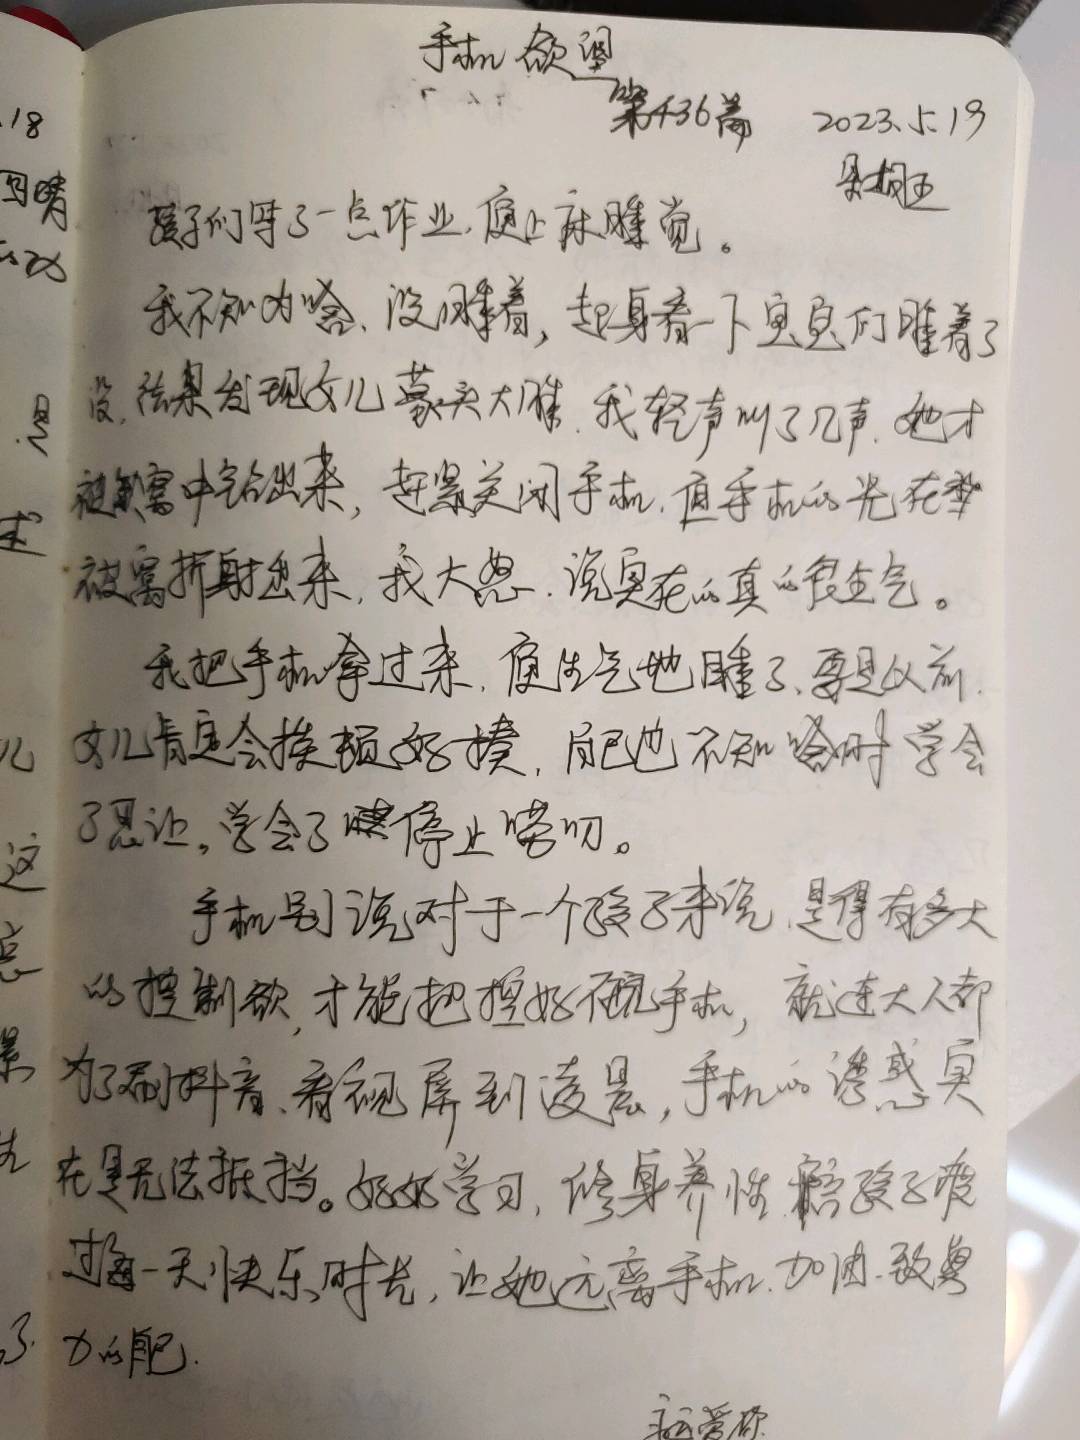 手机欲望
第436篇 2023.5.19
星期五
孩子们写了一点作业,便上床睡觉。
我不知为啥、没睡着,起身看一下宝宝们睡着了
没,结果发现女儿蒙头大睡,我轻声叫了几声,她才
被窝中钻出来,赶紧关闭手机,但手机的光在
被窝折射出来,我大怒,说实在的真的很生气。
我把手机拿过来,便生气地睡了、要是以前,
女儿肯定会挨顿好揍,自己也不知啥时学会
了忍让。学会了停止唠叨。
手机别说对于一个孩子来说,是得有多大
的控制欲,才能把控好不玩手机,就连大人都
为了刷抖音、看视屏到凌晨,手机的诱惑实
在是无法抵挡。好好学习,修身养性,陪孩子度
过每一天快乐时光,让她远离手机.加油.致奥
力的自己.
永远爱你
.18
晴
是
术
儿
这